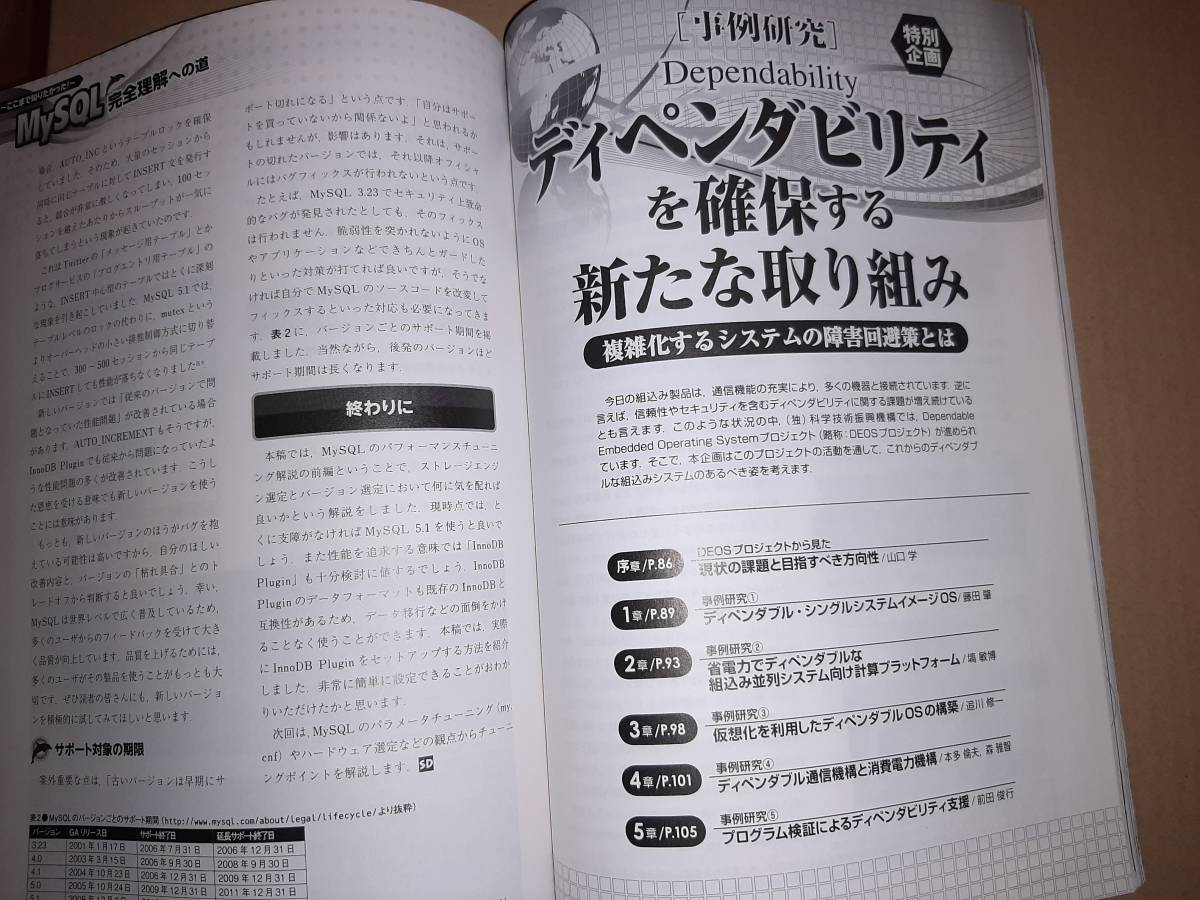 ~ここまで知りたかった!~
MySQL 完全理解への道
AUTO_INCというテーブルロックを確保
していました．そのため，大量のセッションから
同時に同じテーブルに対してINSERT文を発行す
ると，競合が非常に激しくなってしまい，100セッ
ションを越えたあたりからスループットが一気に
落ちてしまうという現象が起きていたのです．
これはTwitterの「メッセージ用テーブル」とか
ブログサービスの「ブログエントリ用テーブル」の
ような，INSERT中心型のテーブルではとくに深刻
な現象を引き起こしていました．MySQL 5.1では，
テーブルレベルのロックの代わりに，mutexという
よりオーバーヘッドの小さい排他制御方式に切り替
えることで，300～500セッションから同じテーブ
ルにINSERTしても性能が落ちなくなりました
新しいバージョンでは「従来のバージョンで問
題となっていた性能問題」が改善されている場合
があります．AUTO_INCREMENTもそうですが，
InnoDB Pluginでも従来から問題になっていたよ
うな性能問題の多くが改善されています．こうし
た恩恵を受ける意味でも新しいバージョンを使う
ことには意味があります．
もっとも，新しいバージョンのほうがバグを抱
えている可能性は高いですから，自分のほしい
改善内容と，バージョンの「枯れ具合」とのト
レードオフから判断すると良いでしょう．幸い，
MySQLは世界レベルで広く普及しているため，
多くのユーザからのフィードバックを受けて大き
く品質が向上しています．品質を上げるためには，
多くのユーザがその製品を使うことがもっとも大
切です．ぜひ読者の皆さんにも，新しいバージョ
ンを積極的に試してみてほしいと思います．
サポート対象の期限
案外重要な点は，「古いバージョンは早期にサ
ポート切れになる」という点です．「自分はサポー
トを買っていないから関係ないよ」と思われるか
もしれませんが，影響はあります．それは，サポー
トの切れたバージョンでは，それ以降オフィシャ
ルにはバグフィックスが行われないという点です．
たとえば，MySQL 3.23でセキュリティ上致命
的なバグが発見されたとしても，そのフィックス
は行われません．脆弱性を突かれないようにOS
やアプリケーションなどできちんとガードした
りといった対策が打てれば良いですが，そうでな
ければ自分でMySQLのソースコードを改変して
フィックスするといった対応も必要になってきま
す．表2に，バージョンごとのサポート期間を掲
載しました．当然ながら，後発のバージョンほど
サポート期間は長くなります．
終わりに
本稿では，MySQLのパフォーマンスチューニ
ング解説の前編ということで，ストレージエンジ
ン選定とバージョン選定において何に気を配れば
良いかという解説をしました．現時点では，と
くに支障がなければMySQL 5.1を使うと良いで
しょう．また性能を追求する意味では「InnoDB
Plugin」も十分検討に値するでしょう．InnoDB
Pluginのデータフォーマットも既存のInnoDBと
互換性があるため，データ移行などの面倒をかけ
ることなく使うことができます．本稿では，実際
にInnoDB Pluginをセットアップする方法を紹介
しました．非常に簡単に設定できることがおわか
りいただけたかと思います．
次回は，MySQLのパラメータチューニング(my.
cnf)やハードウェア選定などの観点からチューニ
ングポイントを解説します．SD
表2●MySQLのバージョンごとのサポート期間(http://www.mysql.com/about/legal/lifecycle/より抜粋)
バージョン GAリリース日 サポート終了日 延長サポート終了日
3.23 2001年1月17日 2006年7月31日 2006年12月31日
4.0 2003年3月15日 2006年9月30日 2008年9月30日
4.1 2004年10月23日 2006年12月31日 2009年12月31日
5.0 2005年10月24日 2009年12月31日 2011年12月31日
[事例研究]
特別
企画
Dependability
ディペンダビリティ
を確保する
新たな取り組み
複雑化するシステムの障害回避策とは
今日の組込み製品は，通信機能の充実により，多くの機器と接続されています．逆に
言えば，信頼性やセキュリティを含むディペンダビリティに関する課題が増え続けている
とも言えます．このような状況の中，(独)科学技術振興機構では，Dependable
Embedded Operating Systemプロジェクト(略称：DEOSプロジェクト)が進められ
ています．そこで，本企画はこのプロジェクトの活動を通して，これからのディペンダブ
ルな組込みシステムのあるべき姿を考えます．
序章/P.86 DEOSプロジェクトから見た
現状の課題と目指すべき方向性/山口 学
1章/P.89 事例研究①
ディペンダブル・シングルシステムイメージOS/藤田 肇
2章/P.93 事例研究②
省電力でディペンダブルな
組込み並列システム向け計算プラットフォーム/塙 敏博
3章/P.98 事例研究③
仮想化を利用したディペンダブルOSの構築/追川 修一
4章/P.101 事例研究④
ディペンダブル通信機構と消費電力機構/本多 倫夫，森 雅智
5章/P.105 事例研究⑤
プログラム検証によるディペンダビリティ支援/前田 俊行